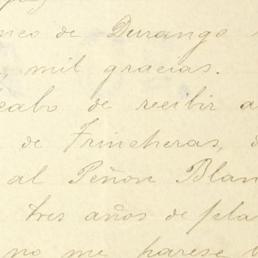 nico de Durango
mil gracias.
cabo de recibir a
de Trincheras, d
al Peñon Blan
tres años de pla
no me parese